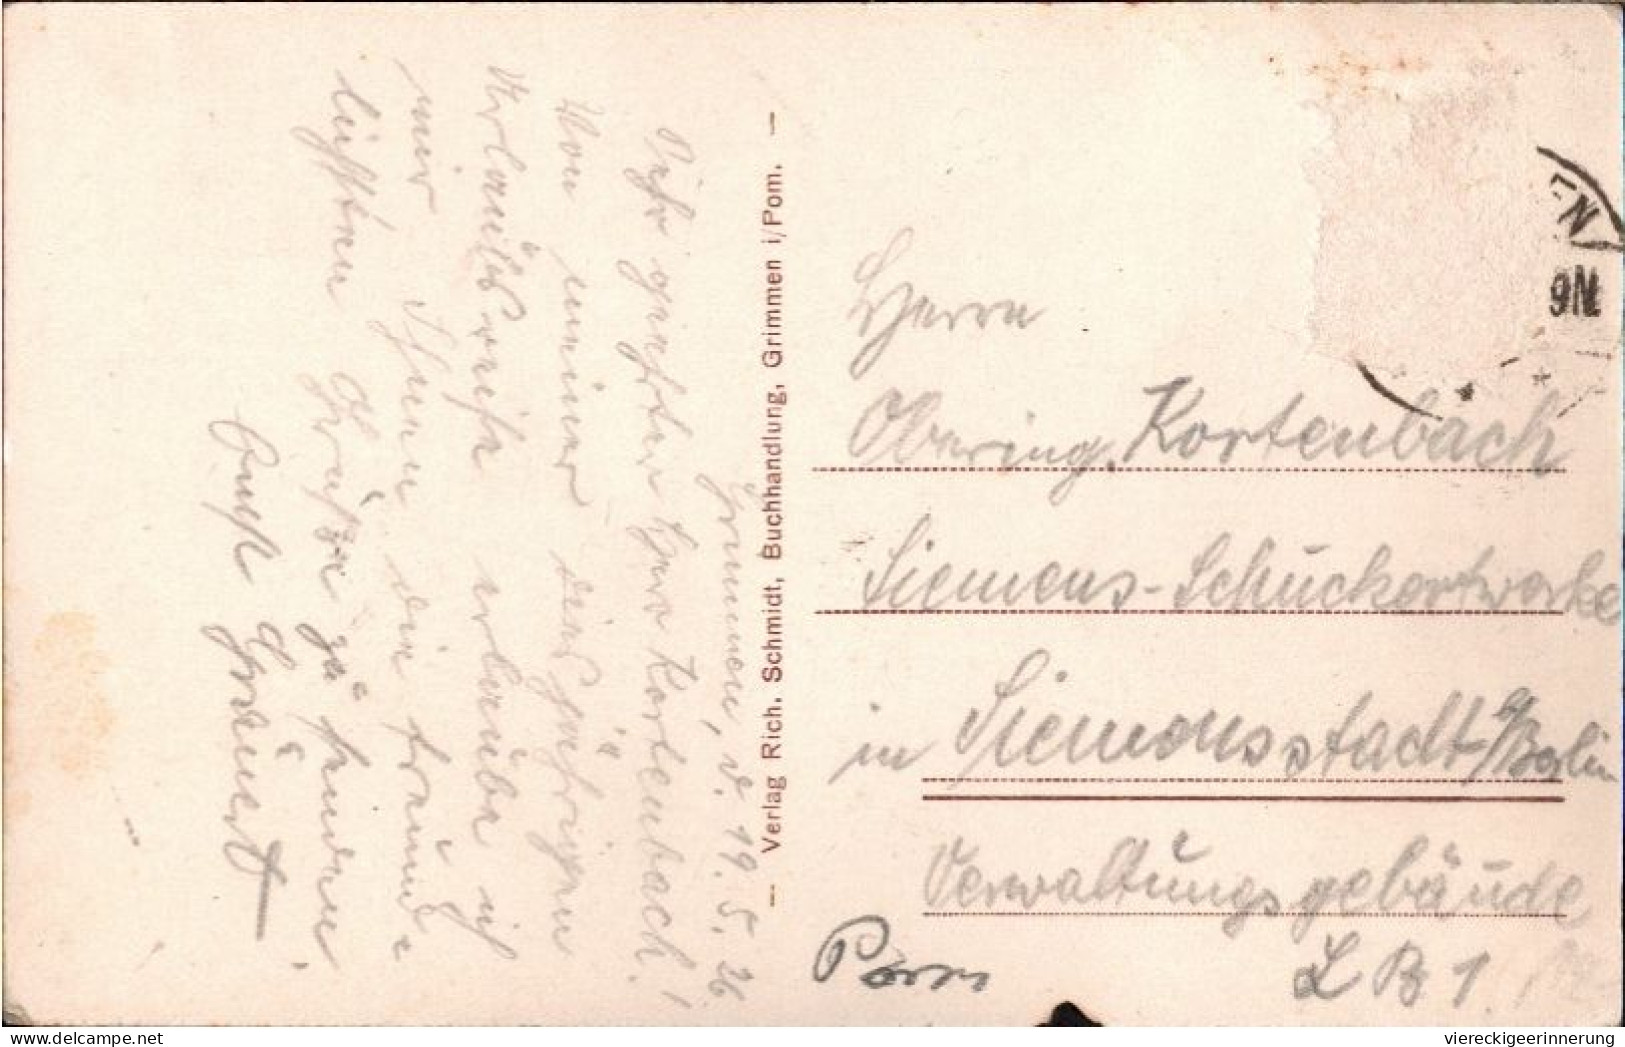 Grimmen, d. 19. 5. 26
Sehr geehrter Herr Kortenbach!
Von meiner diesjährigen
Urlaubsreise erlaube ich
mir Ihnen die freund-
lichsten Grüße zu senden
Grünert
Verlag Rich. Schmidt, Buchhandlung, Grimmen i/Pom.
EN
9N
Herrn
Obering. Kortenbach
Siemens-Schuckertwerke
in Siemensstadt b/Berlin
Verwaltungsgebäude
LB1
Pom
delcampe.net
viereckigeerinnerung